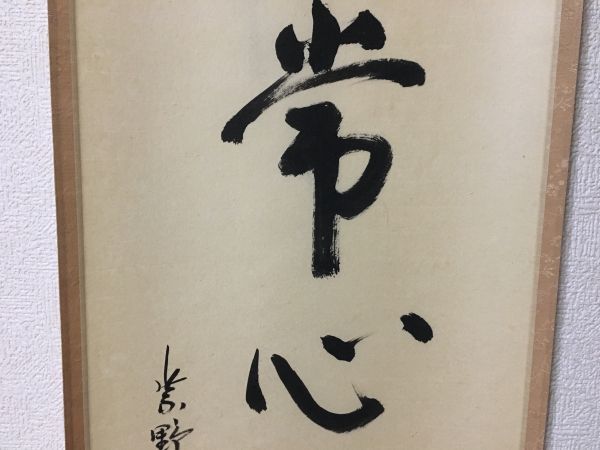 常心
紫野